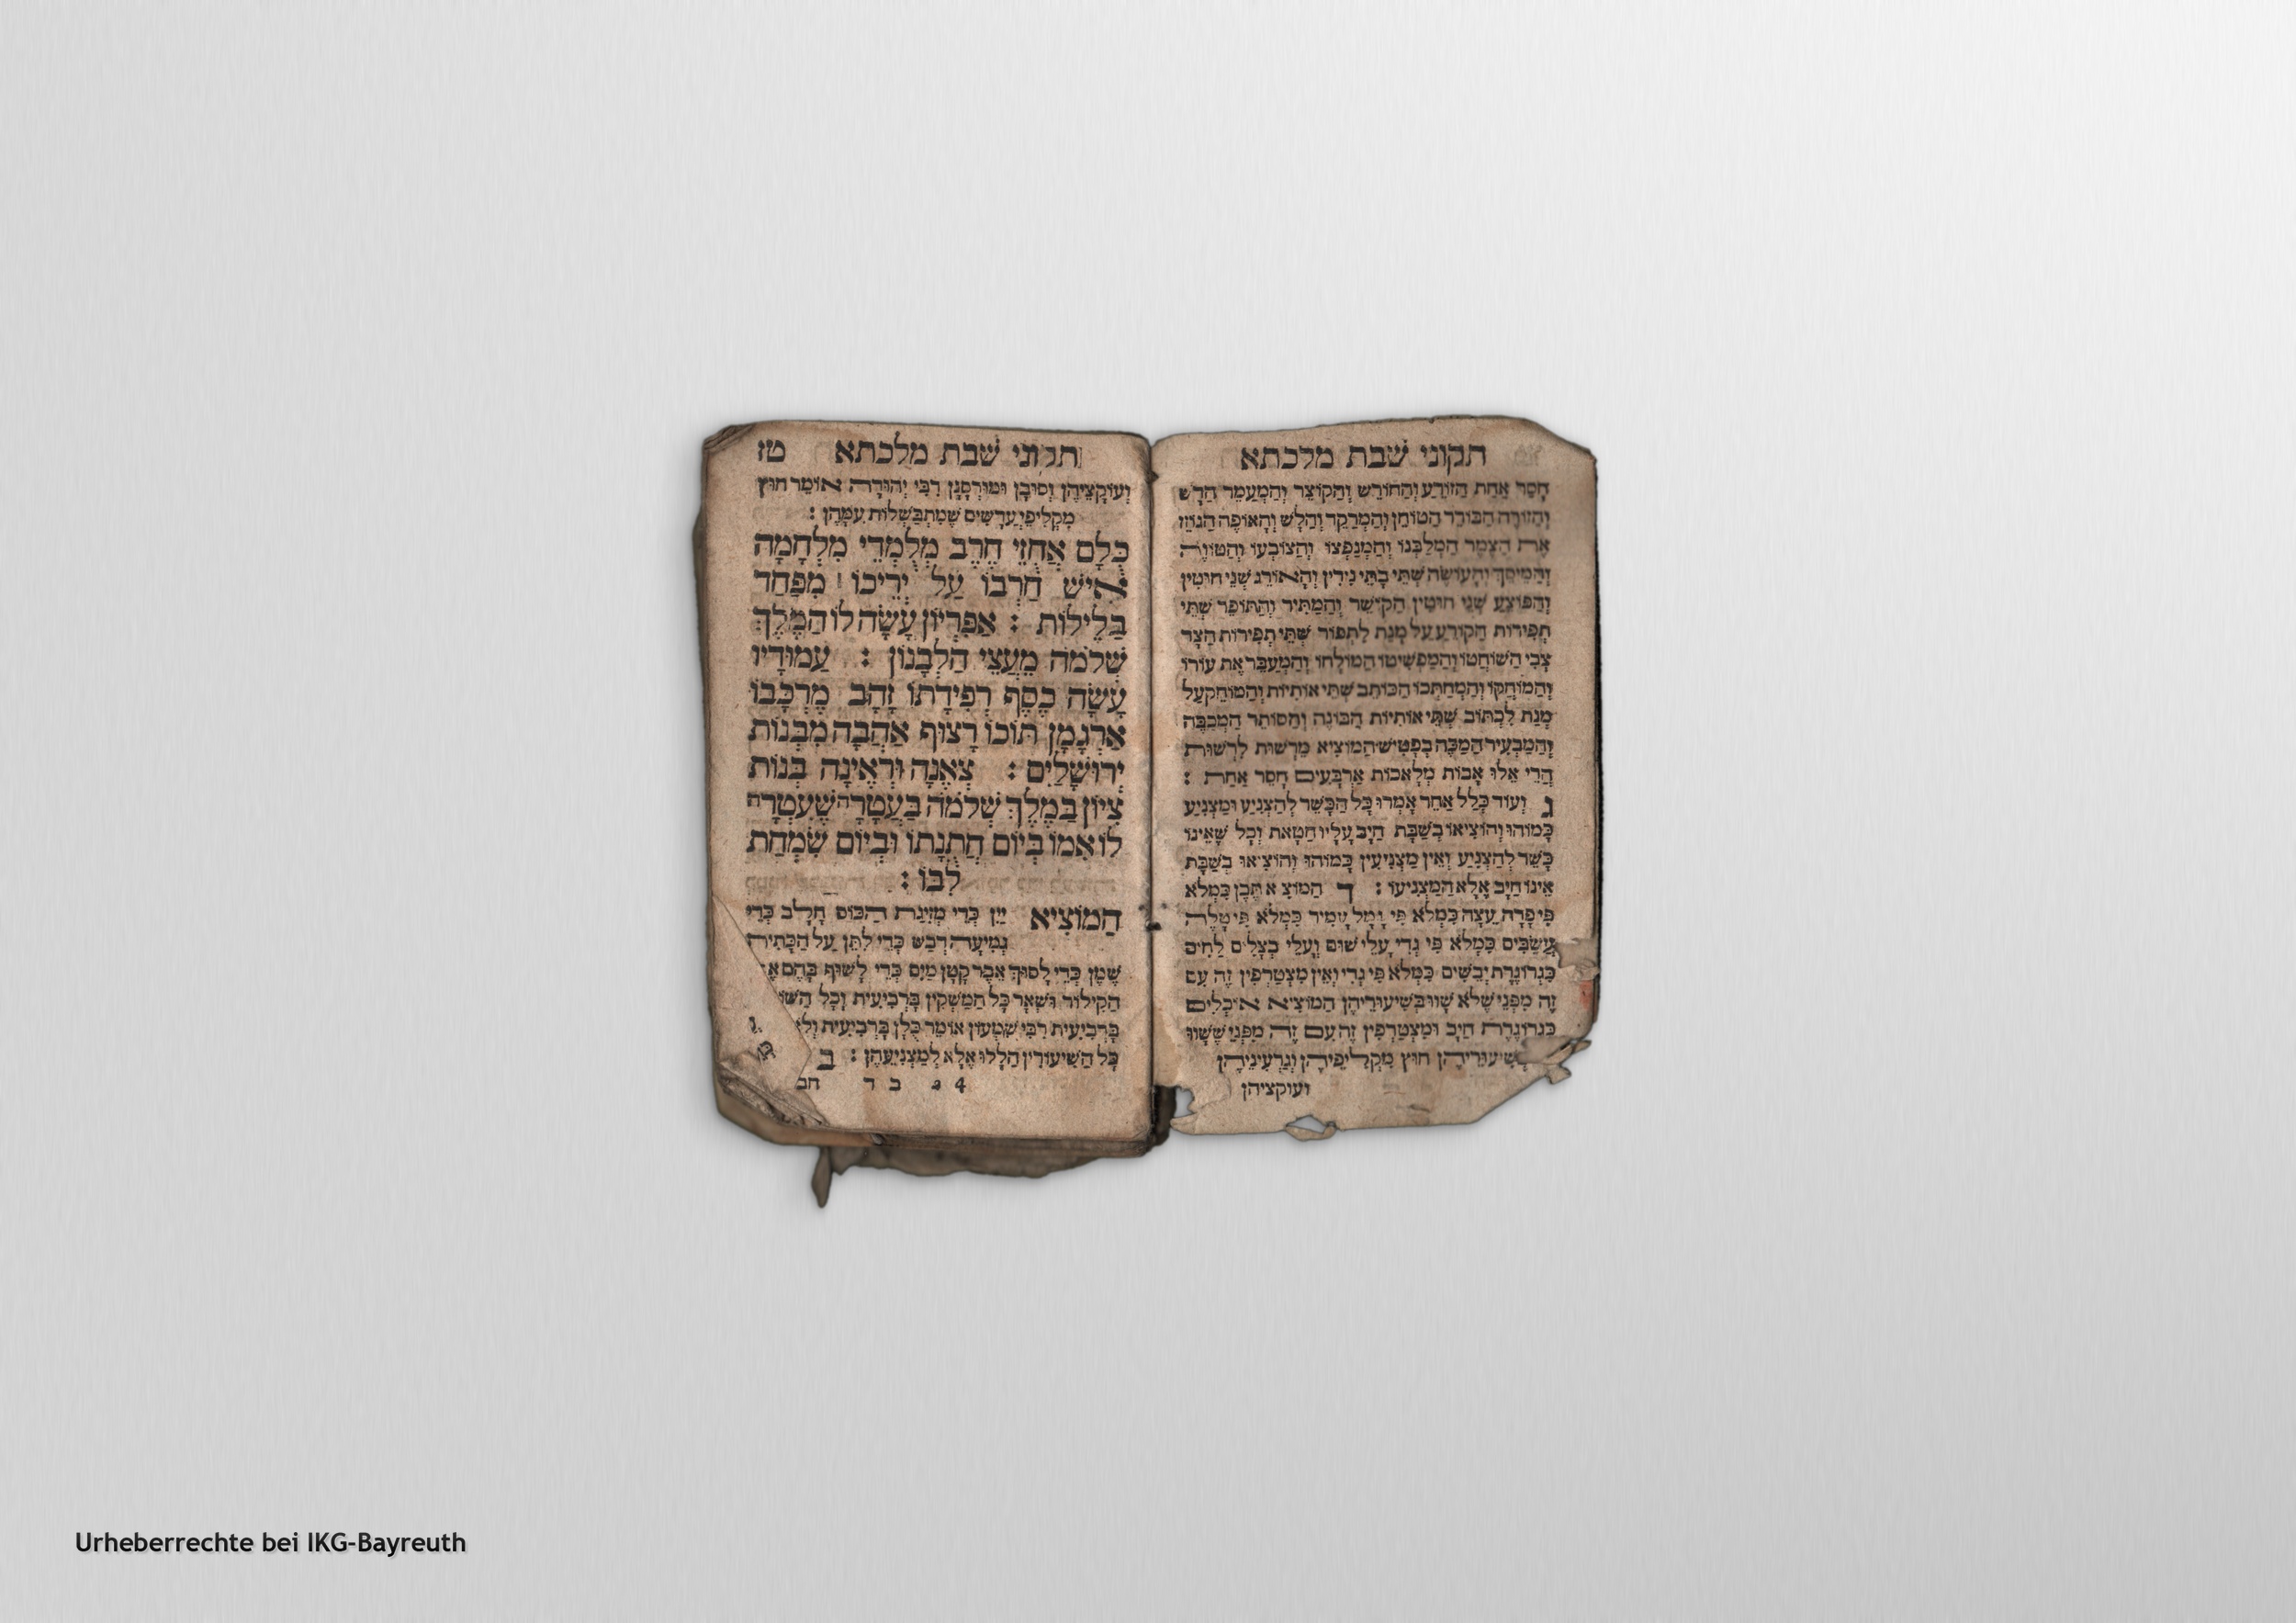 תקוני שבת מלכתא
חָסֵר אַחַת הַזּוֹרֵעַ וְהַחוֹרֵשׁ וְהַקּוֹצֵר וְהַמְעַמֵּר הַדָּשׁ
וְהַזּוֹרֶה הַבּוֹרֵר הַטּוֹחֵן וְהַמְרַקֵּד וְהַלָּשׁ וְהָאוֹפֶה הַגּוֹזֵז
אֶת הַצֶּמֶר הַמְלַבְּנוֹ וְהַמְנַפְּצוֹ וְהַצּוֹבְעוֹ וְהַטּוֹוֶה
וְהַמֵּיסֵךְ וְהָעוֹשֶׂה שְׁתֵּי בָתֵּי נִירִין וְהָאוֹרֵג שְׁנֵי חוּטִין
וְהַפּוֹצֵעַ שְׁנֵי חוּטִין הַקּוֹשֵׁר וְהַמַּתִּיר וְהַתּוֹפֵר שְׁתֵּי
תְפִירוֹת הַקּוֹרֵעַ עַל מְנָת לִתְפּוֹר שְׁתֵּי תְפִירוֹת הַצָּד
צְבִי הַשּׁוֹחֲטוֹ וְהַמַּפְשִׁיטוֹ הַמּוֹלְחוֹ וְהַמְעַבֵּד אֶת עוֹרוֹ
וְהַמּוֹחֲקוֹ וְהַמְחַתְּכוֹ הַכּוֹתֵב שְׁתֵּי אוֹתִיּוֹת וְהַמּוֹחֵק עַל
מְנָת לִכְתּוֹב שְׁתֵּי אוֹתִיּוֹת הַבּוֹנֶה וְהַסּוֹתֵר הַמְכַבֶּה
וְהַמַּבְעִיר הַמַּכֶּה בְפַטִּישׁ הַמּוֹצִיא מֵרְשׁוּת לִרְשׁוּת
הֲרֵי אֵלּוּ אָבוֹת מְלָאכוֹת אַרְבָּעִים חָסֵר אַחַת :
ג וְעוֹד כְּלָל אַחֵר אָמְרוּ כָּל הַכָּשֵׁר לְהַצְנִיעַ וּמַצְנִיעַ
כָּמוֹהוּ וְהוֹצִיאוֹ בְּשַׁבָּת חַיָּב עָלָיו חַטָּאת וְכָל שֶׁאֵינוֹ
כָּשֵׁר לְהַצְנִיעַ וְאֵין מַצְנִיעִין כָּמוֹהוּ וְהוֹצִיאוֹ בְּשַׁבָּת
אֵינוֹ חַיָּב אֶלָּא הַמַּצְנִיעוֹ : ד הַמּוֹצִיא תֶּבֶן כִּמְלֹא
פִּי פָרָה עֵצָה כִּמְלֹא פִּי גָמָל עָמִיר כִּמְלֹא פִּי טָלֶה
עֲשָׂבִּים כִּמְלֹא פִּי גְדִי עֲלֵי שׁוּם וַעֲלֵי בְצָלִים לַחִים
כִּגְרוֹגֶרֶת יְבֵשִׁים כִּמְלֹא פִּי גְדִי וְאֵין מִצְטָרְפִין זֶה עִם
זֶה מִפְּנֵי שֶׁלֹּא שָׁווּ בְּשִׁיעוּרֵיהֶן הַמּוֹצִיא אוֹכָלִים
כִּגְרוֹגֶרֶת חַיָּב וּמִצְטָרְפִין זֶה עִם זֶה מִפְּנֵי שֶׁשָּׁווּ
בְּשִׁיעוּרֵיהֶן חוּץ מִקְּלִיפֵיהֶן וְגַרְעִינֵיהֶן
ועוקציהן
תקוני שבת מלכתא טז
וְעוּקְצֵיהֶן וְסוּבָּן וּמוּרְסָנָן רַבִּי יְהוּדָה אוֹמֵר חוּץ
מִקְּלִיפֵּי עֲדָשִׁים שֶׁמִּתְבַּשְּׁלוֹת עִמָּהֶן :
כֻּלָּם אֲחֻזֵי חֶרֶב מְלֻמְּדֵי מִלְחָמָה
אִישׁ חַרְבּוֹ עַל יְרֵיכוֹ מִפַּחַד
בַּלֵּילוֹת : אַפִּרְיוֹן עָשָׂה לוֹ הַמֶּלֶךְ
שְׁלֹמֹה מֵעֲצֵי הַלְּבָנוֹן : עַמּוּדָיו
עָשָׂה כֶסֶף רְפִידָתוֹ זָהָב מֶרְכָּבוֹ
אַרְגָּמָן תּוֹכוֹ רָצוּף אַהֲבָה מִבְּנוֹת
יְרוּשָׁלָיִם : צְאֶנָה וּרְאֶינָה בְּנוֹת
צִיּוֹן בַּמֶּלֶךְ שְׁלֹמֹה בַּעֲטָרָה שֶׁעִטְּרָה
לּוֹ אִמּוֹ בְּיוֹם חֲתֻנָּתוֹ וּבְיוֹם שִׂמְחַת
לִבּוֹ :
הַמּוֹצִיא יַיִן כְּדֵי מְזִיגַת הַכּוֹס חָלָב כְּדֵי
גְמִיעָה דְבַשׁ כְּדֵי לִתֵּן עַל הַכָּתִית
שֶׁמֶן כְּדֵי לָסוּךְ אֵבָר קָטָן מַיִם כְּדֵי לָשׁוּף בָּהֶם
הַקִּילוֹר וּשְׁאָר כָּל הַמַּשְׁקִין בִּרְבִיעִית וְכָל
בִּרְבִיעִית רַבִּי שִׁמְעוֹן אוֹמֵר כֻּלָּן בִּרְבִיעִית
כָּל הַשִּׁיעוּרִין הַלָּלוּ אֶלָּא לְמַצְנִיעֵיהֶן : ב
4 ב ד